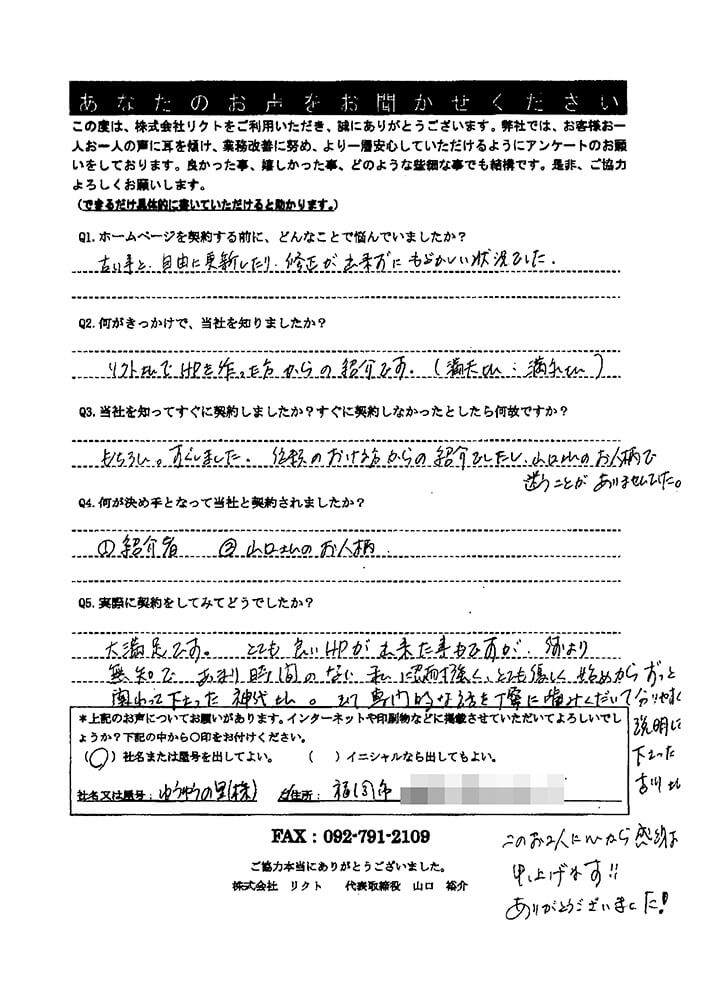 あなたのお声をお聞かせください
この度は、株式会社リクトをご利用いただき、誠にありがとうございます。弊社では、お客様お一
人お一人の声に耳を傾け、業務改善に努め、より一層安心していただけるようにアンケートのお願
いをしております。良かった事、嬉しかった事、どのような些細な事でも結構です。是非、ご協力
よろしくお願いします。
（できるだけ具体的に書いていただけると助かります。）
Q1. ホームページを契約する前に、どんなことで悩んでいましたか？
古い事と、自由に更新したり、修正が出来ずに もどかしい状況でした。
Q2. 何がきっかけで、当社を知りましたか？
リクトさんでHPを作った方からの紹介です。
Q3. 当社を知ってすぐに契約しましたか？すぐに契約しなかったとしたら何故ですか？
もちろん。すぐしました。信頼のおける方からの紹介でしたし、山口さんのお人柄で
迷うことがありませんでした。
Q4. 何が決め手となって当社と契約されましたか？
①紹介者 ②山口さんのお人柄
Q5. 実際に契約をしてみてどうでしたか？
大満足です。とても良いHPが出来た事もですが、何より
無知で あまり時間のない私に忍耐強く、とても優しく始めからずっと
関わって下さった神代さん。そして専門的な話を丁寧に噛みくだいて分りやすく
説明して
下さった
古川さん
このお2人に心から感謝
申し上げます!!
ありがとうございました!
＊上記のお声についてお願いがあります。インターネットや印刷物などに掲載させていただいてよろしいでし
ょうか？下記の中から〇印をお付けください。
（〇）社名または屋号を出してよい。 （ ）イニシャルなら出してもよい。
社名又は屋号： ゆうゆうの里(株) ご住所： 福岡市
FAX：092-791-2109
ご協力本当にありがとうございました。
株式会社 リクト 代表取締役 山口 裕介